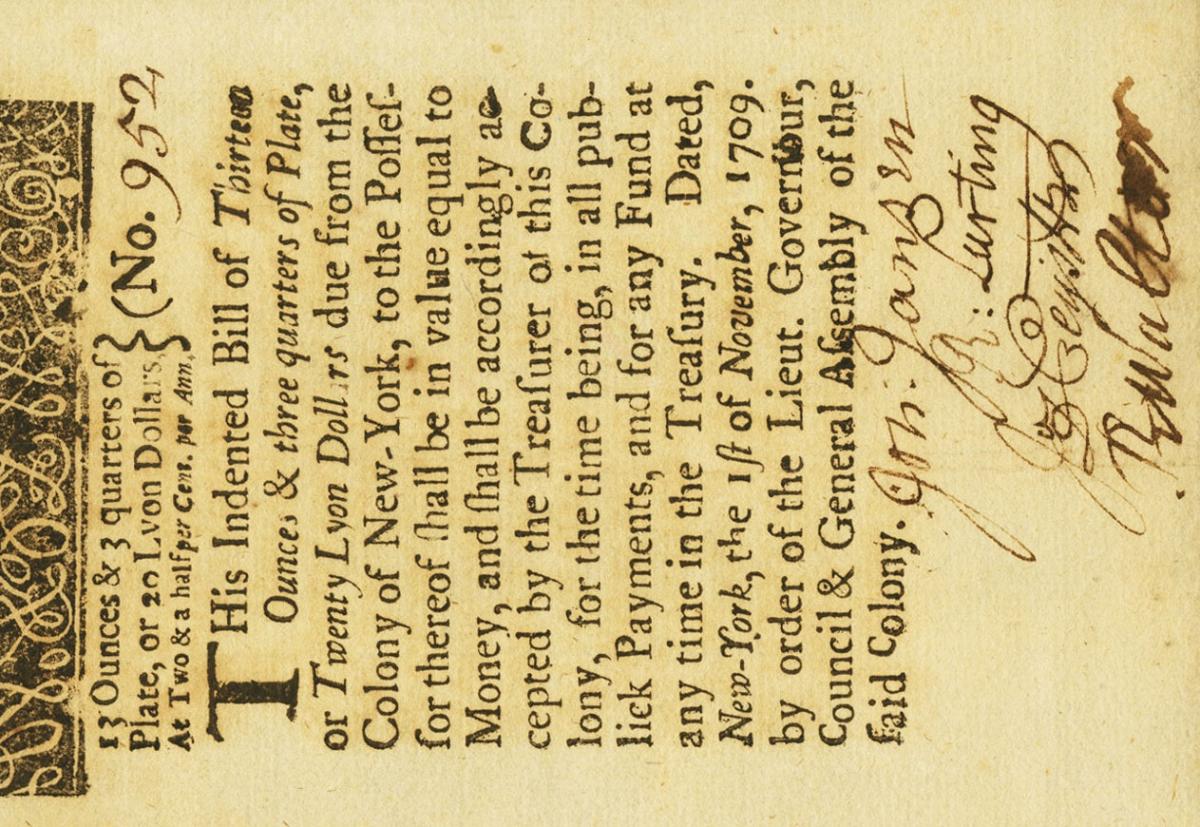 13 Ounces & 3 quarters of
Plate, or 20 Lyon Dollars,
At Two & a half per Cent. per Ann.
(No. 952
THis Indented Bill of Thirteen
Ounces & three quarters of Plate,
or Twenty Lyon Dollars due from the
Colony of New-York, to the Poſſeſ-
ſor thereof ſhall be in value equal to
Money, and ſhall be accordingly ac-
cepted by the Treaſurer of this Co-
lony, for the time being, in all pub-
lick Payments, and for any Fund at
any time in the Treaſury. Dated,
New-York, the 1ſt of November, 1709.
by order of the Lieut. Governour,
Council & General Aſſembly of the
ſaid Colony.
Joh: Janſen
R: Lurting
R Walton